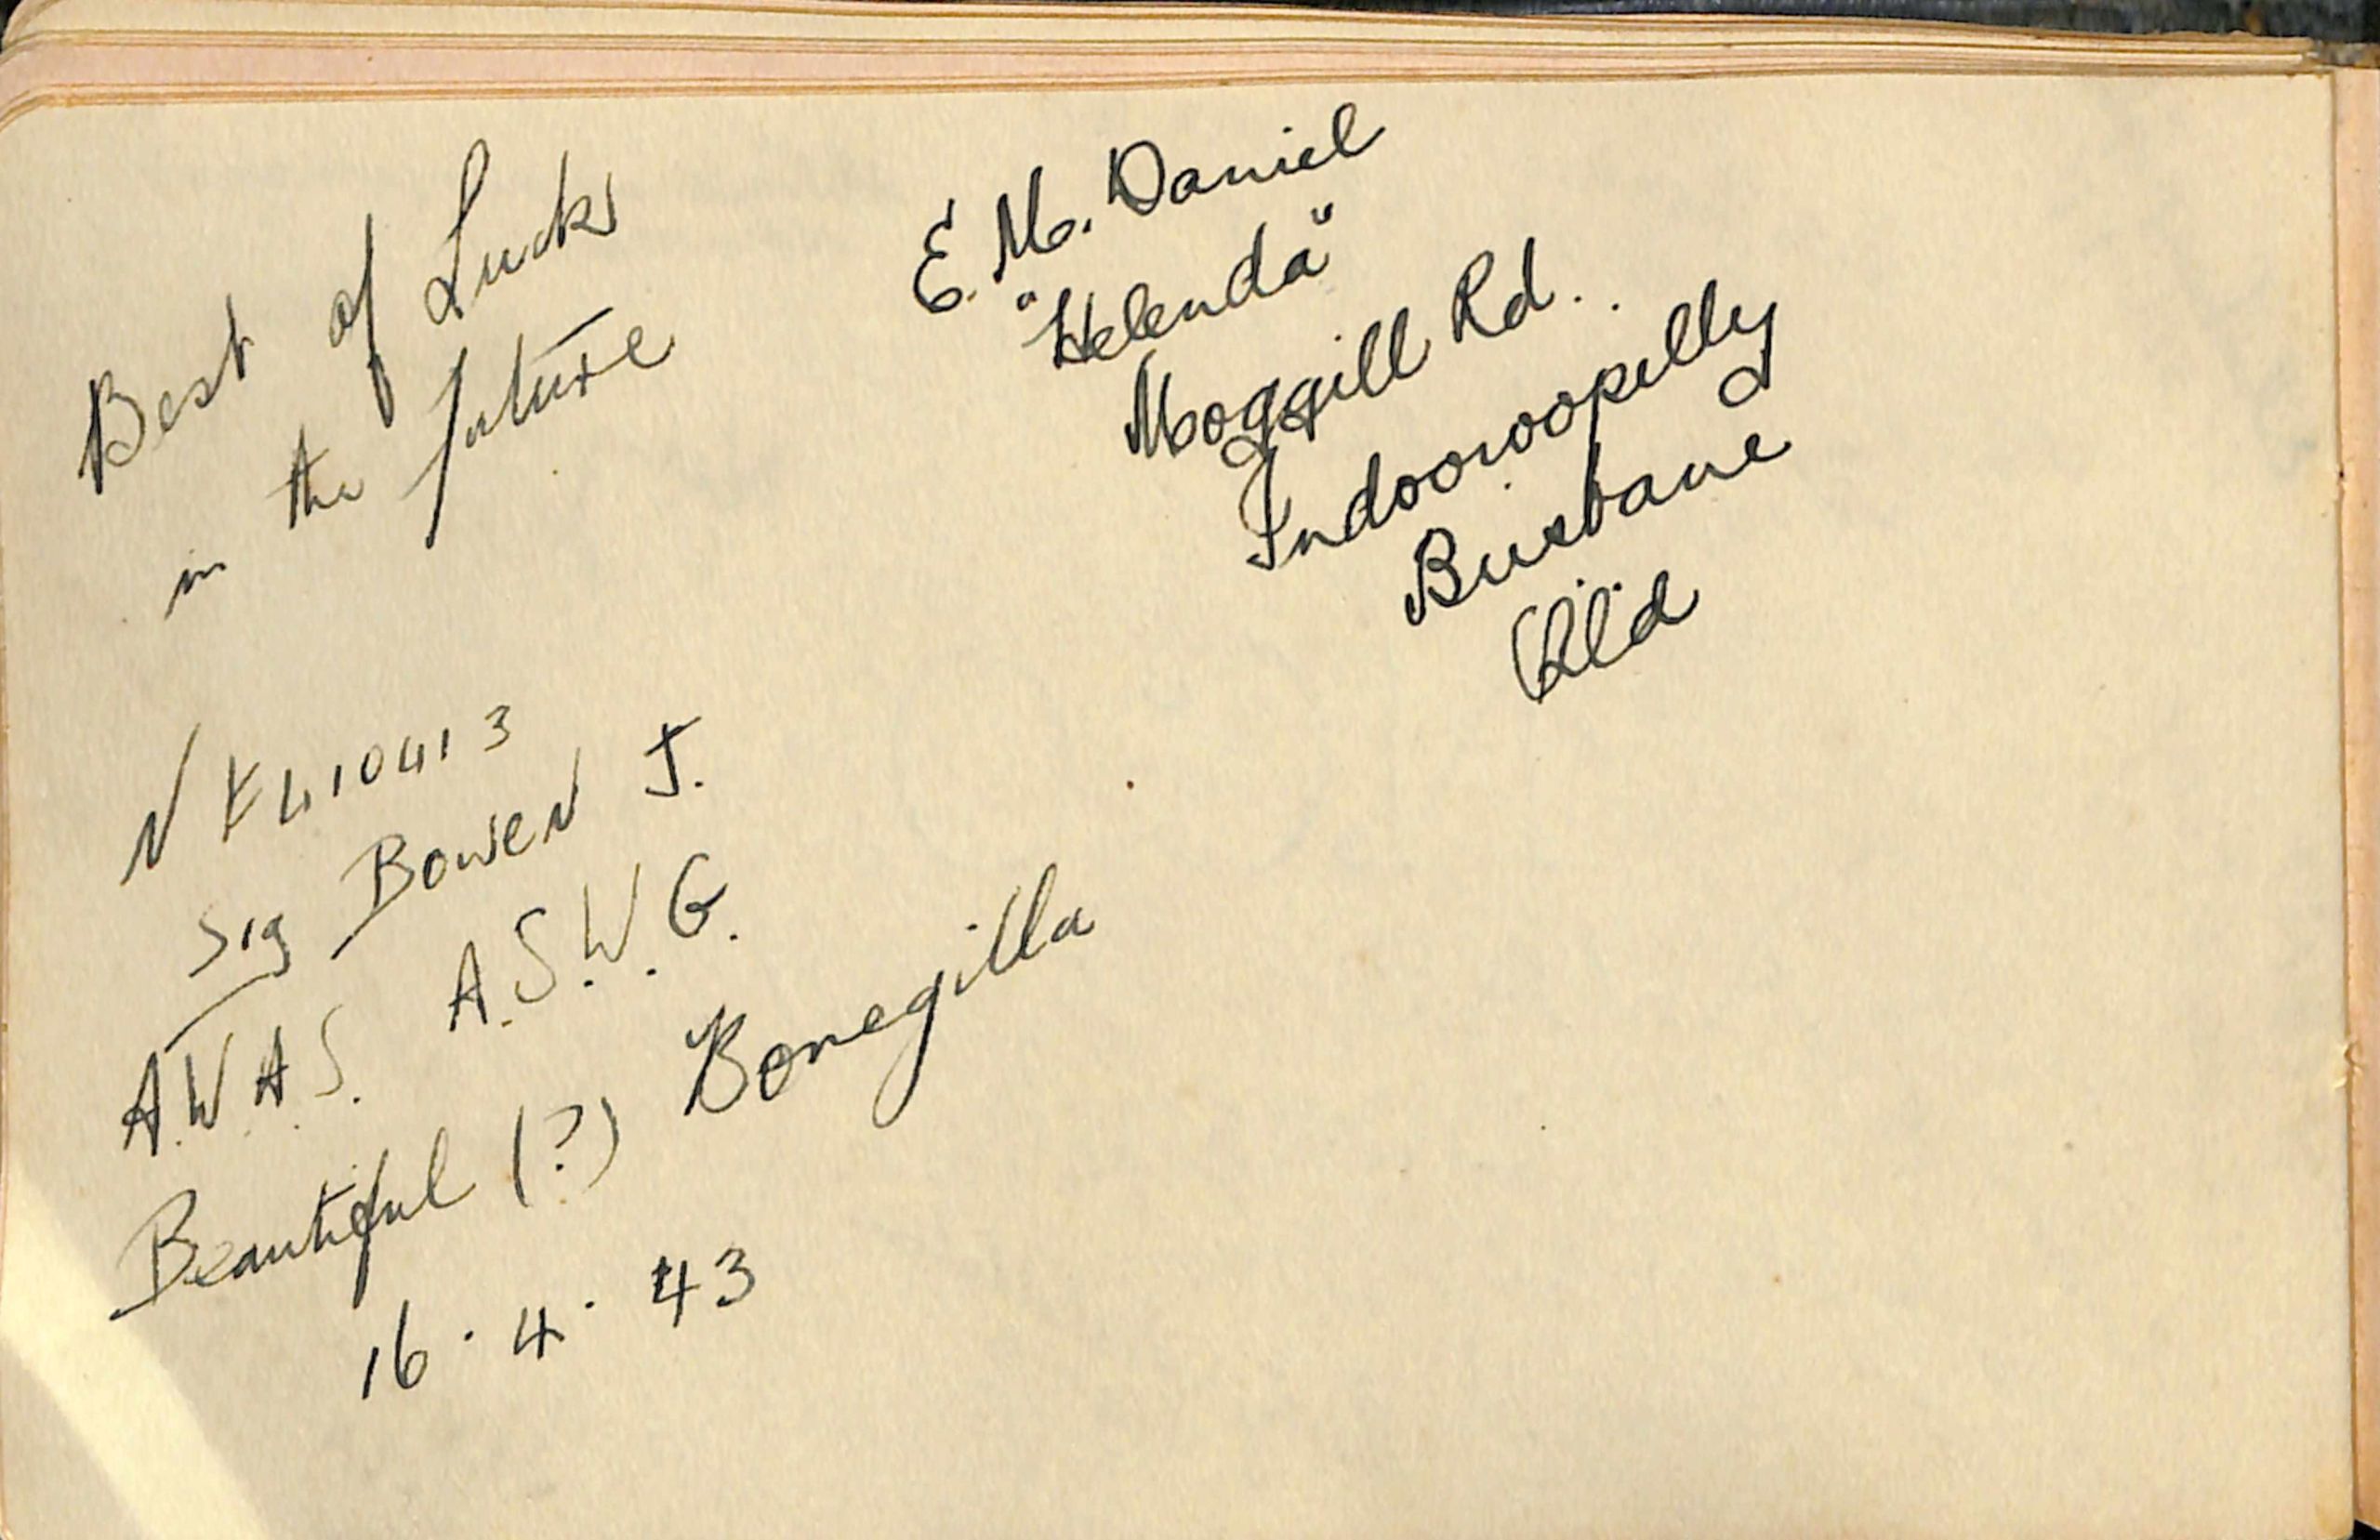 Best of Luck
in the future
NF410413
Sig Bowen J.
A.W.A.S. A.S.W.G.
Beautiful (?) Bonegilla
16.4.43
E. M. Daniel
"Helenda"
Moggill Rd.
Indooroopilly
Brisbane
Qld